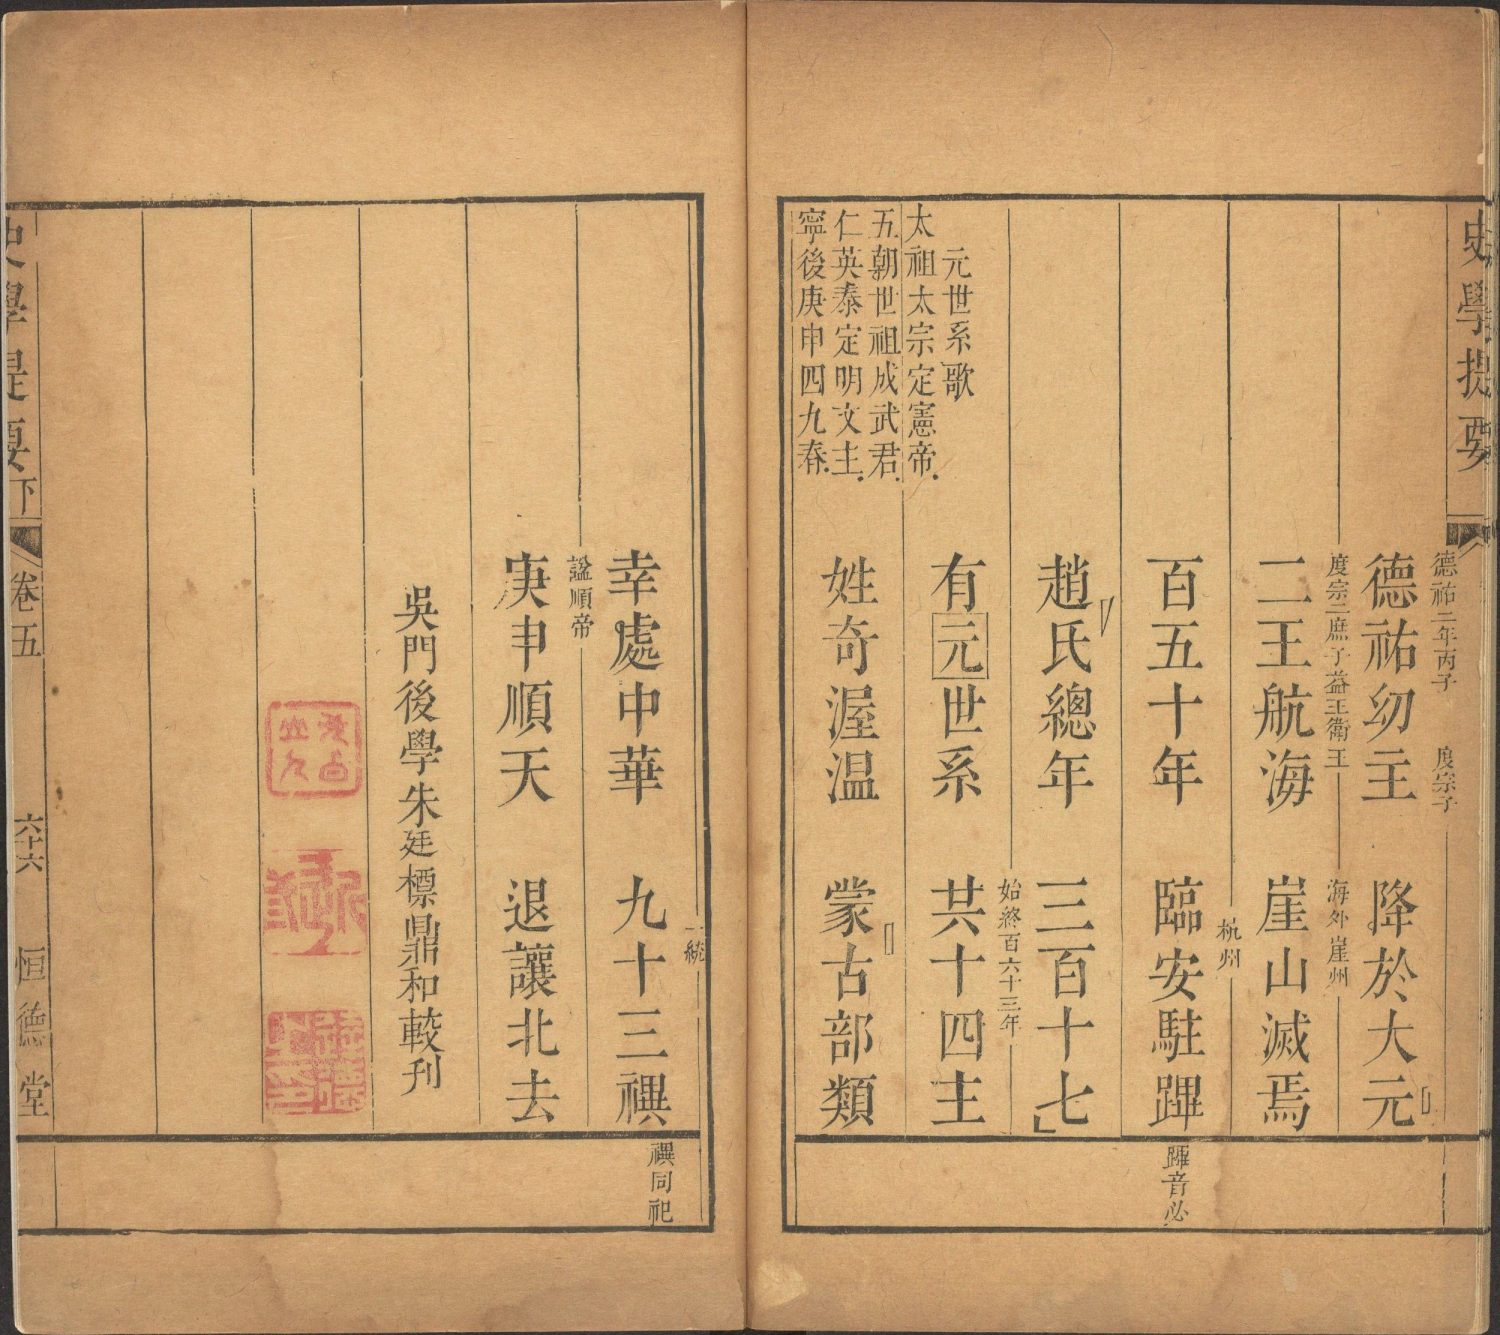 史學提要
德祐二年丙子　度宗子
德祐幼主　降於大元
度宗二庶子益王衛王　海外崖州
二王航海　崖山滅焉
杭州
百五十年　臨安駐蹕
蹕音必
趙氏總年　三百十七
始終百六十三年
有元世系　共十四主
姓奇渥温　蒙古部類
元世系歌
太祖太宗定憲帝
五朝世祖成武君
仁英泰定明文主
寧後庚申四九春
一統
幸處中華　九十三禩
禩同祀
諡順帝
庚申順天　退讓北去
吳門後學朱廷標鼎和較刊
史學提要下
卷五
六十六
恒德堂